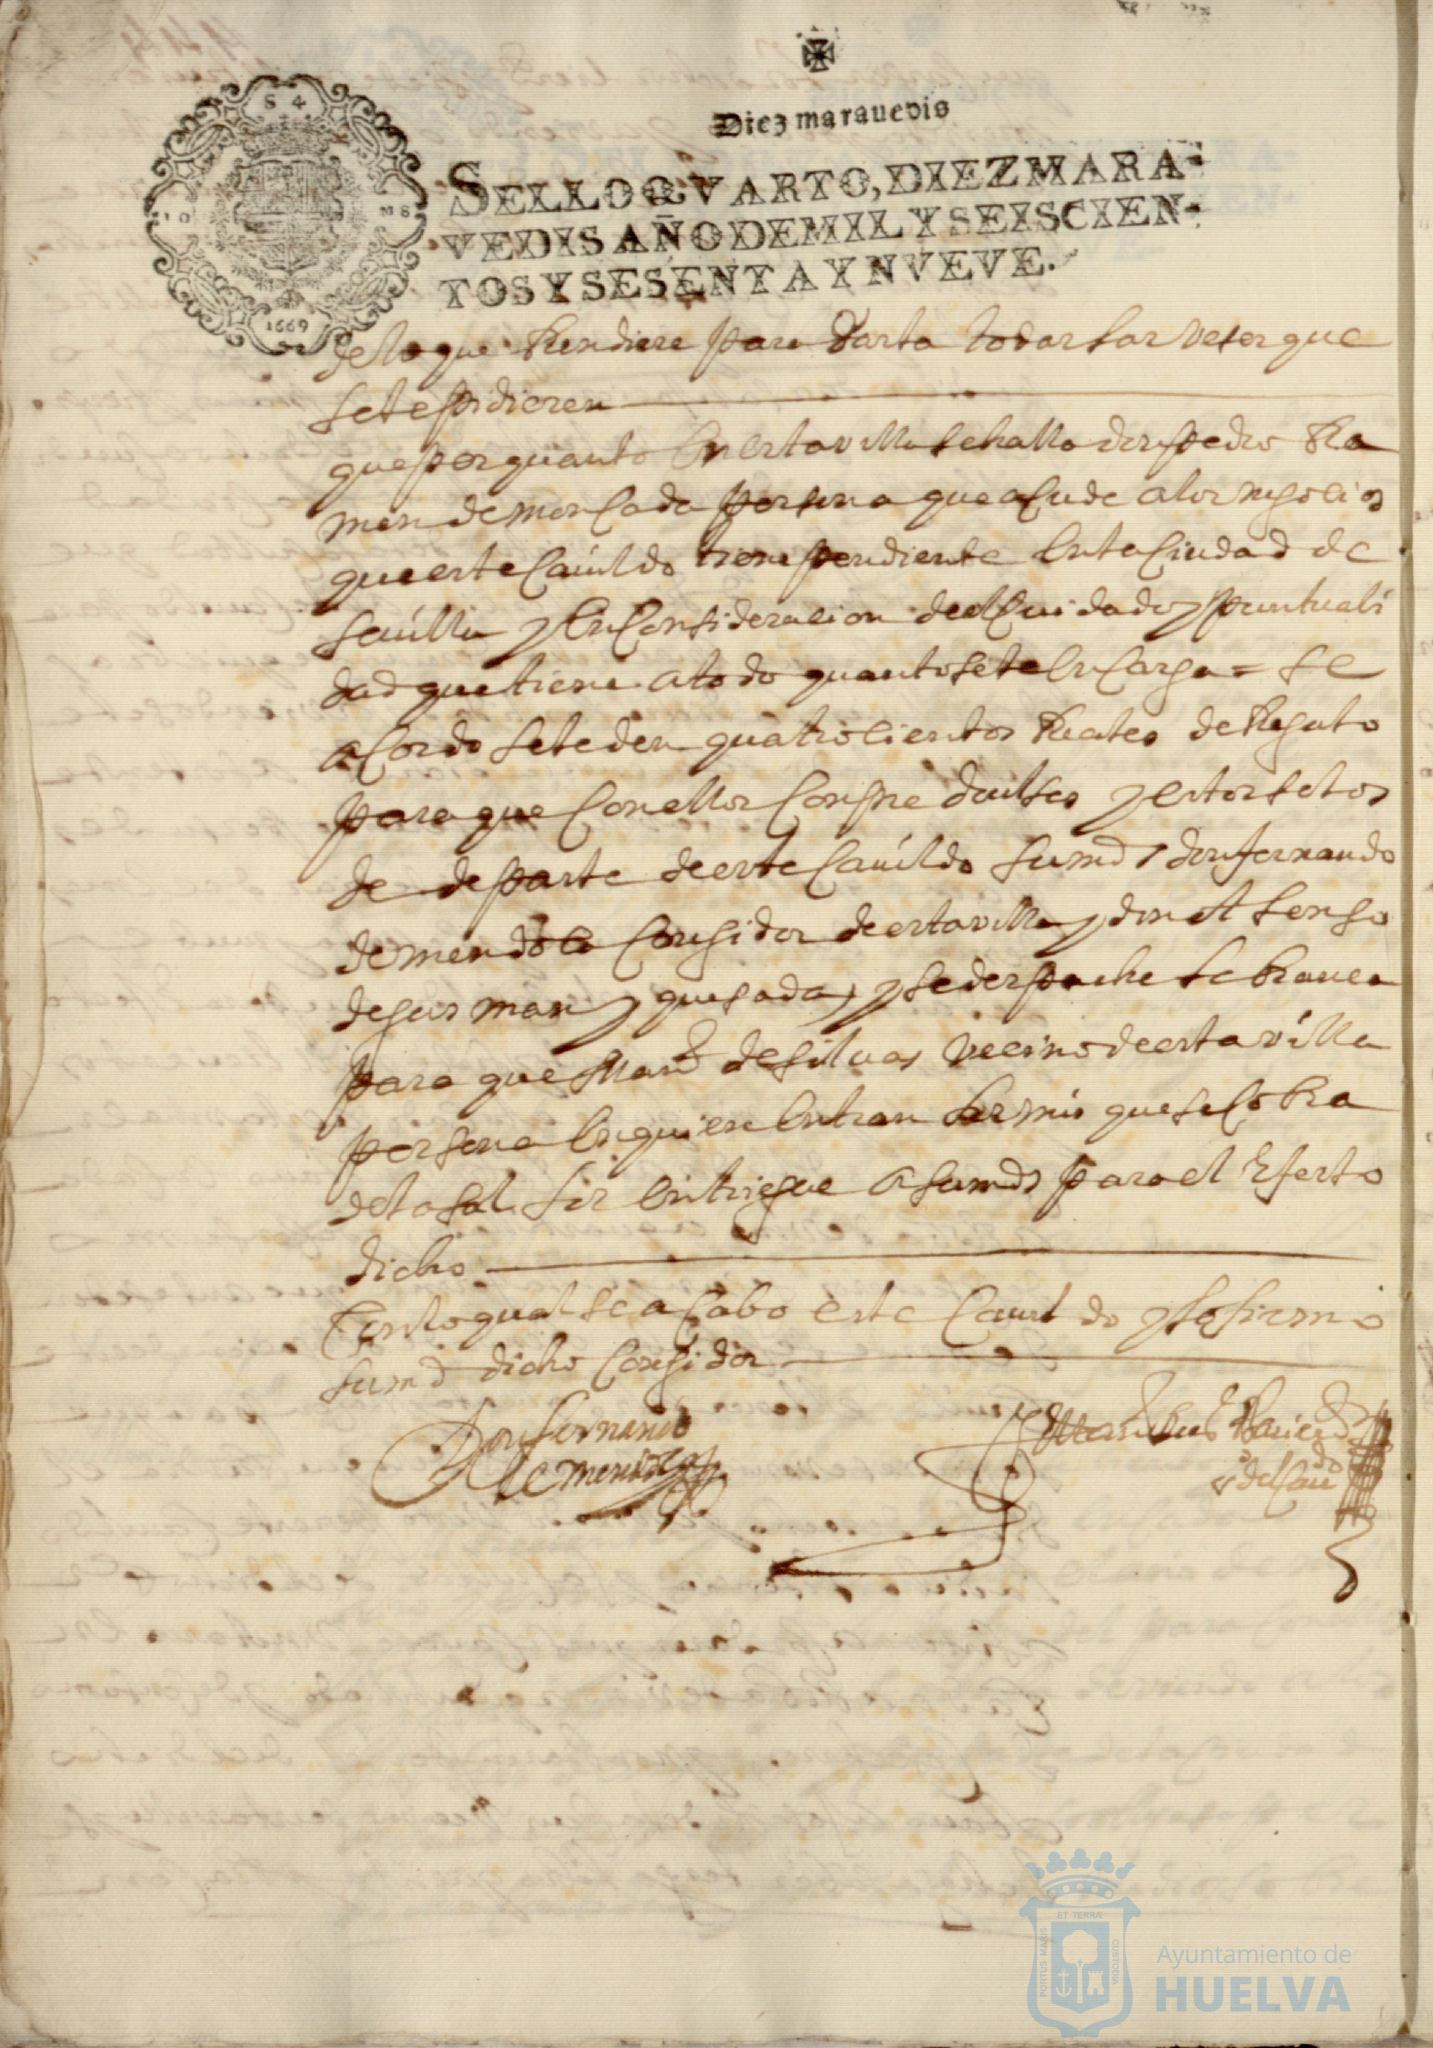 Diez marauedis
SELLO QVARTO, DIEZ MARA-
VEDIS AÑO DE MIL Y SEISCIEN-
TOS Y SESENTA Y NVEVE.
S 4
1669
de lo que Rindiere para darla todas las veses que
se le pidieren
que por quanto en esta villa se halla don pedro Ra
mon de moncada persona que acude a los negocios
que este cauildo tiene pendiente en la Ciudad de
seuilla y en Consideracion del Cuidado y puntuali
dad que tiene a todo quanto se le encarga = se
acordo se le den quatrocientos Reales de Regalo
para que con ellos Compre dulses y estos se los
de de parte de este cauildo su md don fernando
de mendoça Corregidor de esta villa y don Alonso
de gusman y quesada y se despache librança
para que de siluas vecino de esta villa
persona en quien entran los mrs que se cobra
de la sal los entregue a sus mds para el efecto
dicho
Con lo qual se acabo este Cauildo y lo firmo
su md dicho Corregidor
Don fernando
de mendoça
del Cau do
Ayuntamiento de
HUELVA
PORTUS MARIS
ET TERRÆ
CUSTODIA